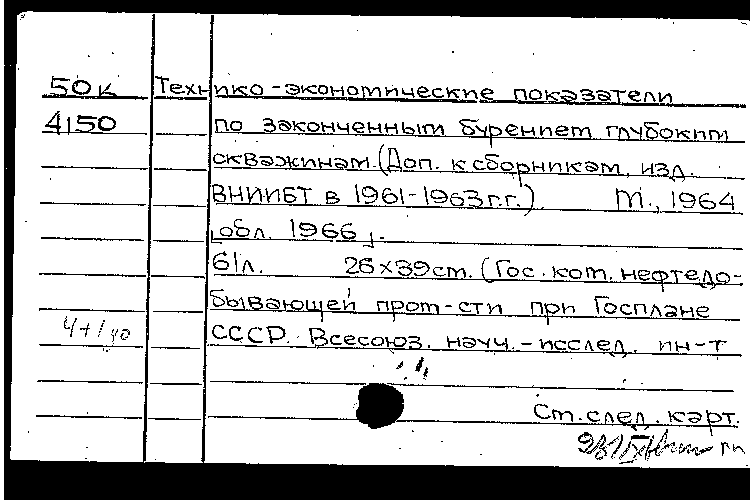 50к Технико-экономические показатели
4150 по законченным бурением глубоким
скважинам. (Доп. к сборникам, изд.
ВНИИБТ в 1961-1963г.г.). М., 1964
[обл. 1966].
61л. 26×39см. (Гос. ком. нефтедо-
бывающей пром-сти при Госплане
4+1уо СССР. Всесоюз. науч.-исслед. ин-т
См. след. карт.